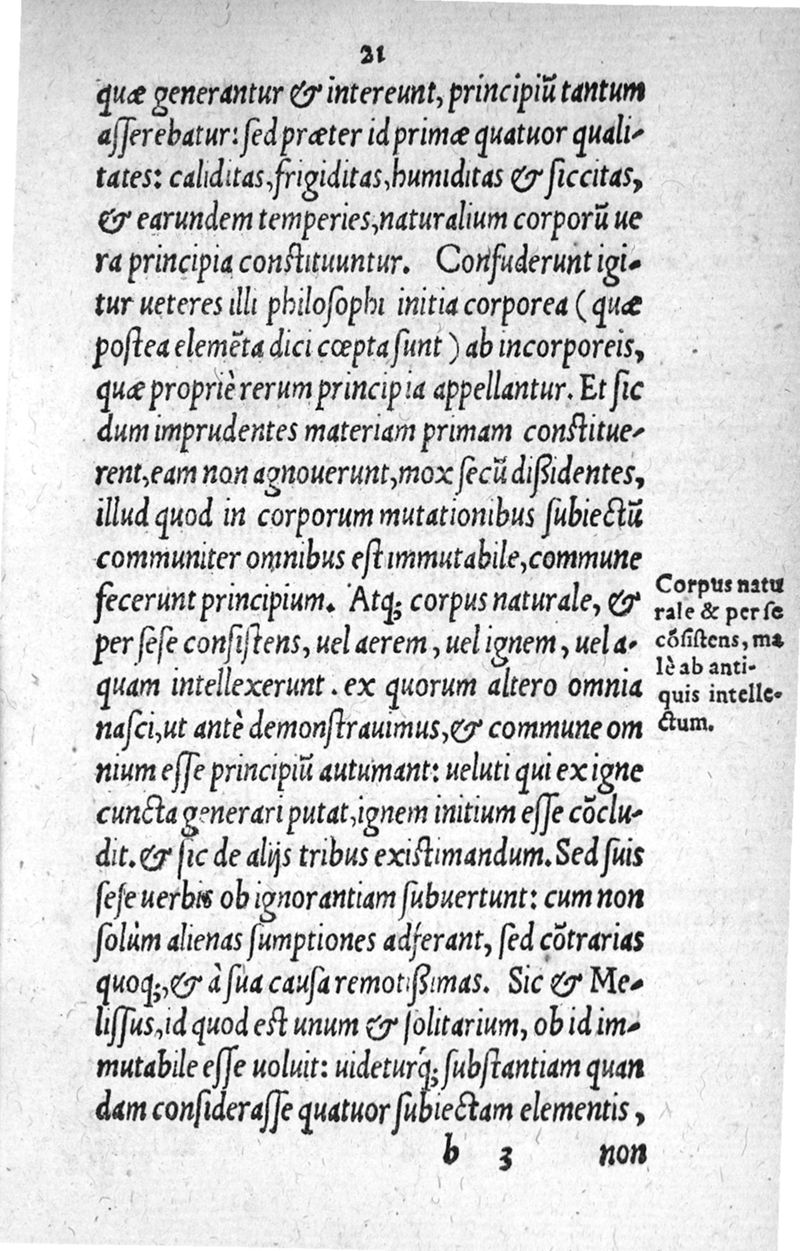 21
quæ generantur & intereunt, principiũ tantum
aſſerebatur: ſed præter id primæ quatuor quali-
tates: caliditas, frigiditas, humiditas & ſiccitas,
& earundem temperies, naturalium corporũ ue
ra principia conſtituuntur. Confuderunt igi-
tur ueteres illi philoſophi initia corporea (quæ
poſtea elemẽta dici cœpta ſunt) ab incorporeis,
quæ propriè rerum principia appellantur. Et ſic
dum imprudentes materiam primam conſtitue-
rent, eam non agnouerunt, mox ſecũ dißidentes,
illud quod in corporum mutationibus ſubiectũ
communiter omnibus eſt immutabile, commune
fecerunt principium. Atq; corpus naturale, &
per ſeſe conſiſtens, uel aerem, uel ignem, uel a-
quam intellexerunt. ex quorum altero omnia
naſci, ut antè demonſtrauimus, & commune om
nium eſſe principiũ autumant: ueluti qui ex igne
cuncta generari putat, ignem initium eſſe cõclu-
dit. & ſic de alijs tribus exiſtimandum. Sed ſuis
ſeſe uerbis ob ignorantiam ſubuertunt: cum non
ſolùm alienas ſumptiones adferant, ſed cõtrarias
quoq;, & à ſua cauſa remotißimas. Sic & Me-
liſſus, id quod eſt unum & ſolitarium, ob id im-
mutabile eſſe uoluit: uideturq́; ſubſtantiam quan
dam conſideraſſe quatuor ſubiectam elementis,
b 3 non
Corpus natu
rale & per ſe
cõſiſtens, ma
lè ab anti-
quis intelle-
ctum.